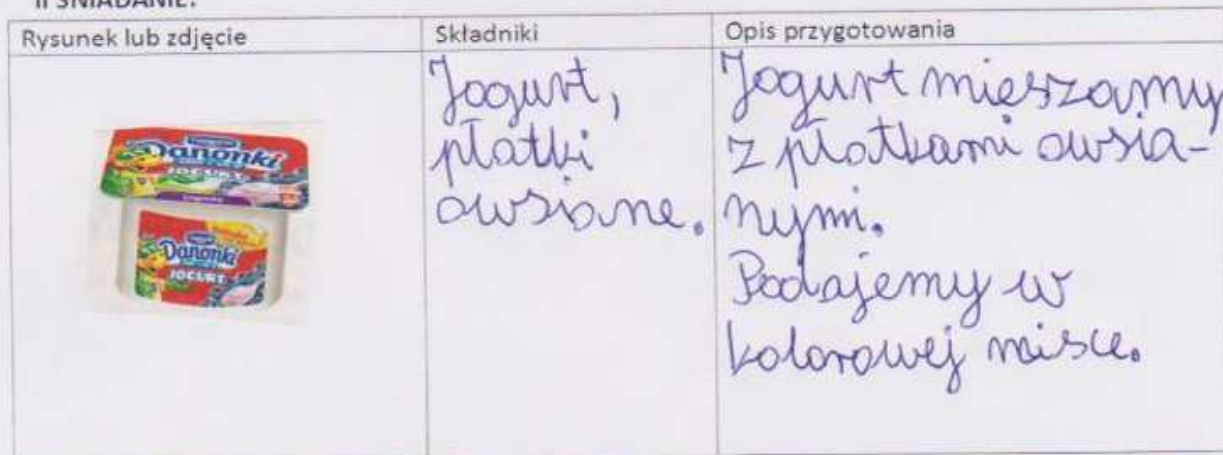 II ŚNIADANIE:
Rysunek lub zdjęcie
Składniki
Opis przygotowania
Danonki
JOGURT
Danonki
JOGURT
Jogurt,
płatki
owsiane.
Jogurt mieszamy
z płatkami owsia-
nymi.
Podajemy w
kolorowej misce.